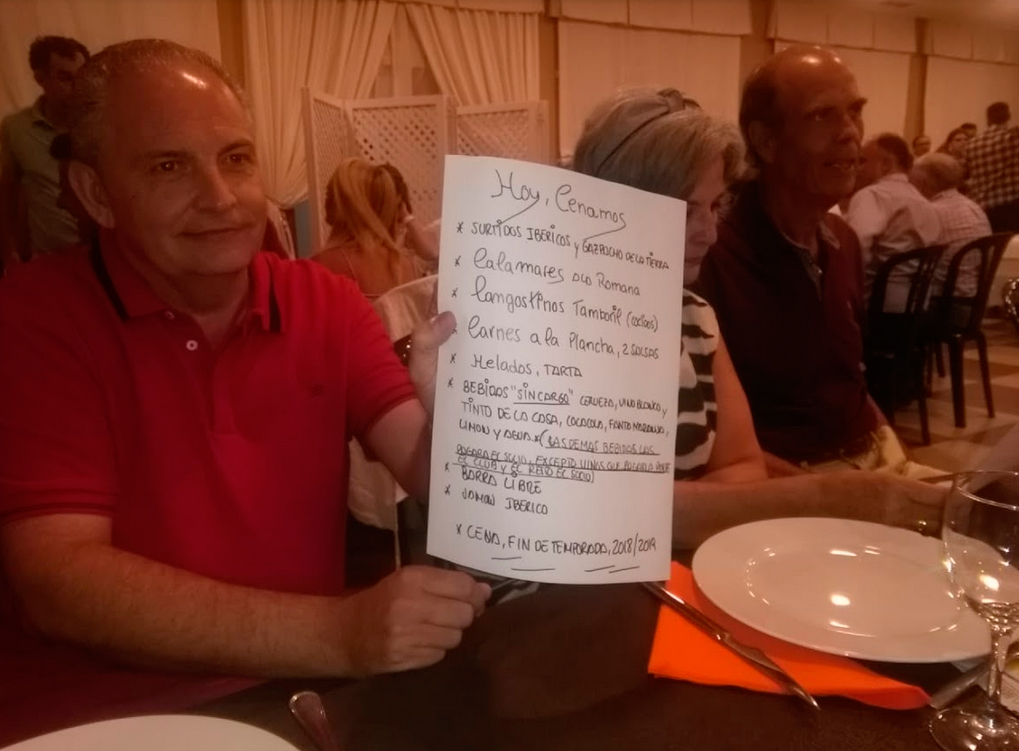 Hoy, Cenamos
* SURTIDOS IBERICOS y GAZPACHO DE LA TIERRA
* Calamares a la Romana
* Langostinos Tamboril (cocidos)
* Carnes a la Plancha, 2 SALSAS
* Helados, TARTA
* BEBIDAS "SIN CARGO" CERVEZA, VINO BLANCO Y
TINTO DE LA CASA, COCACOLA, FANTA NARANJA,
LIMON Y AGUA * (LAS DEMAS BEBIDAS LAS
PAGARA EL SOCIO, EXCEPTO VINOS QUE PAGARA
EL CLUB Y EL RESTO EL SOCIO)
* BARRA LIBRE
* JAMON IBERICO
* CENA, FIN DE TEMPORADA, 2018/2019